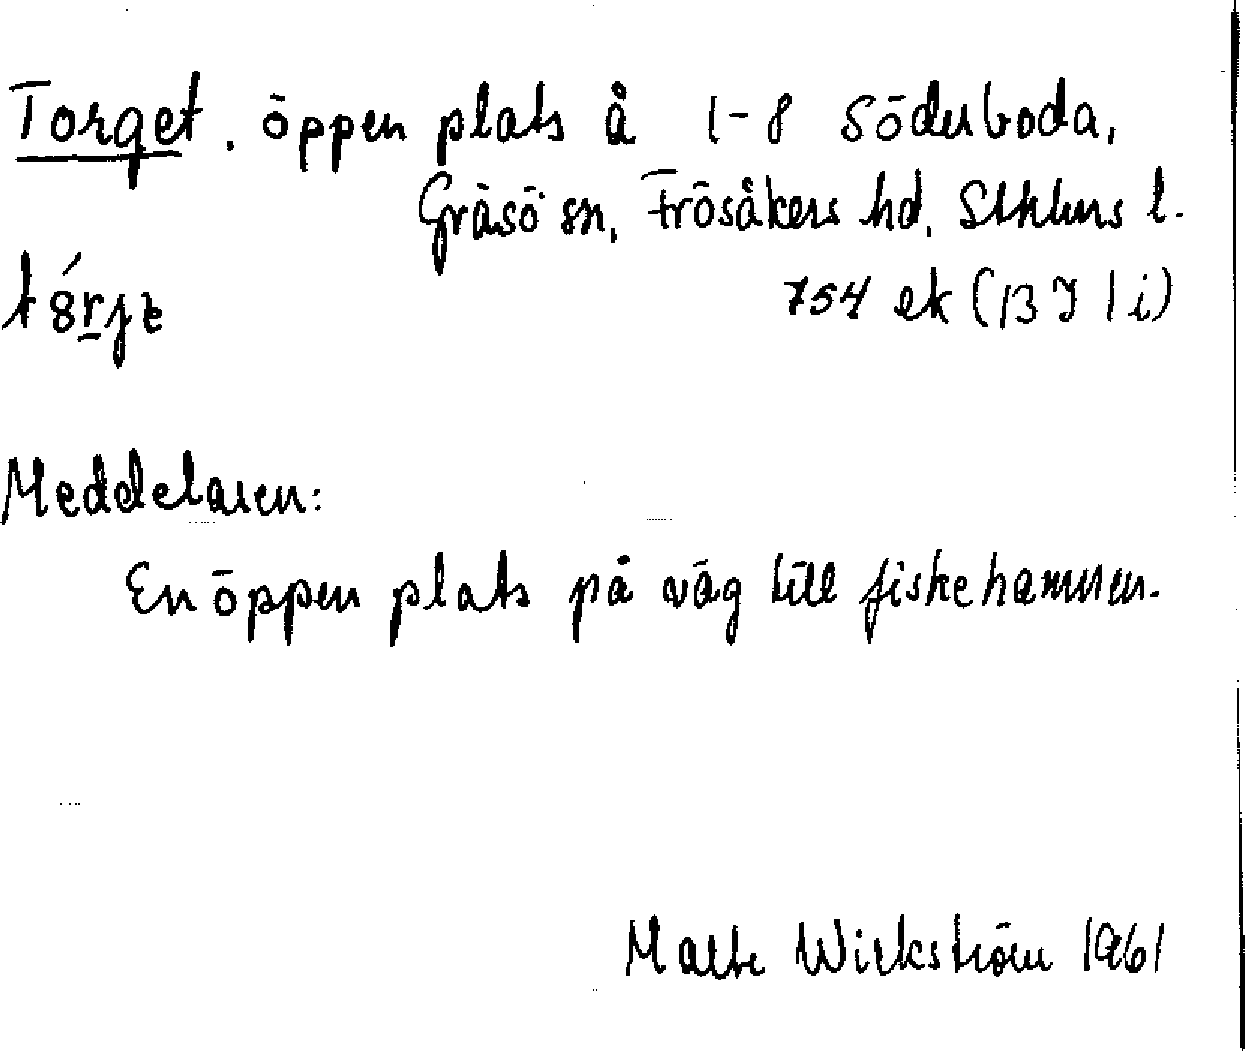 Torget. öppen plats å 1-8 Söderboda,
Gräsö sn, Frösåkers hd, Sthlms l.
754 ek (13 I 1 i)
Meddelaren:
En öppen plats på väg till fiskehamnen.
Malte Wickström 1961